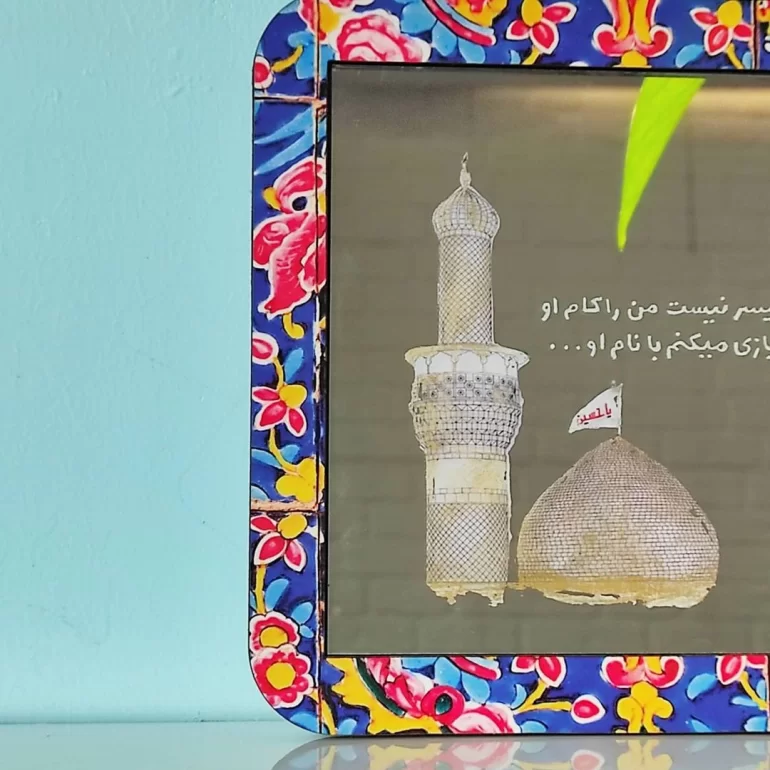 نیست من را کام او
بازی میکنم با نام او...
یا حسین